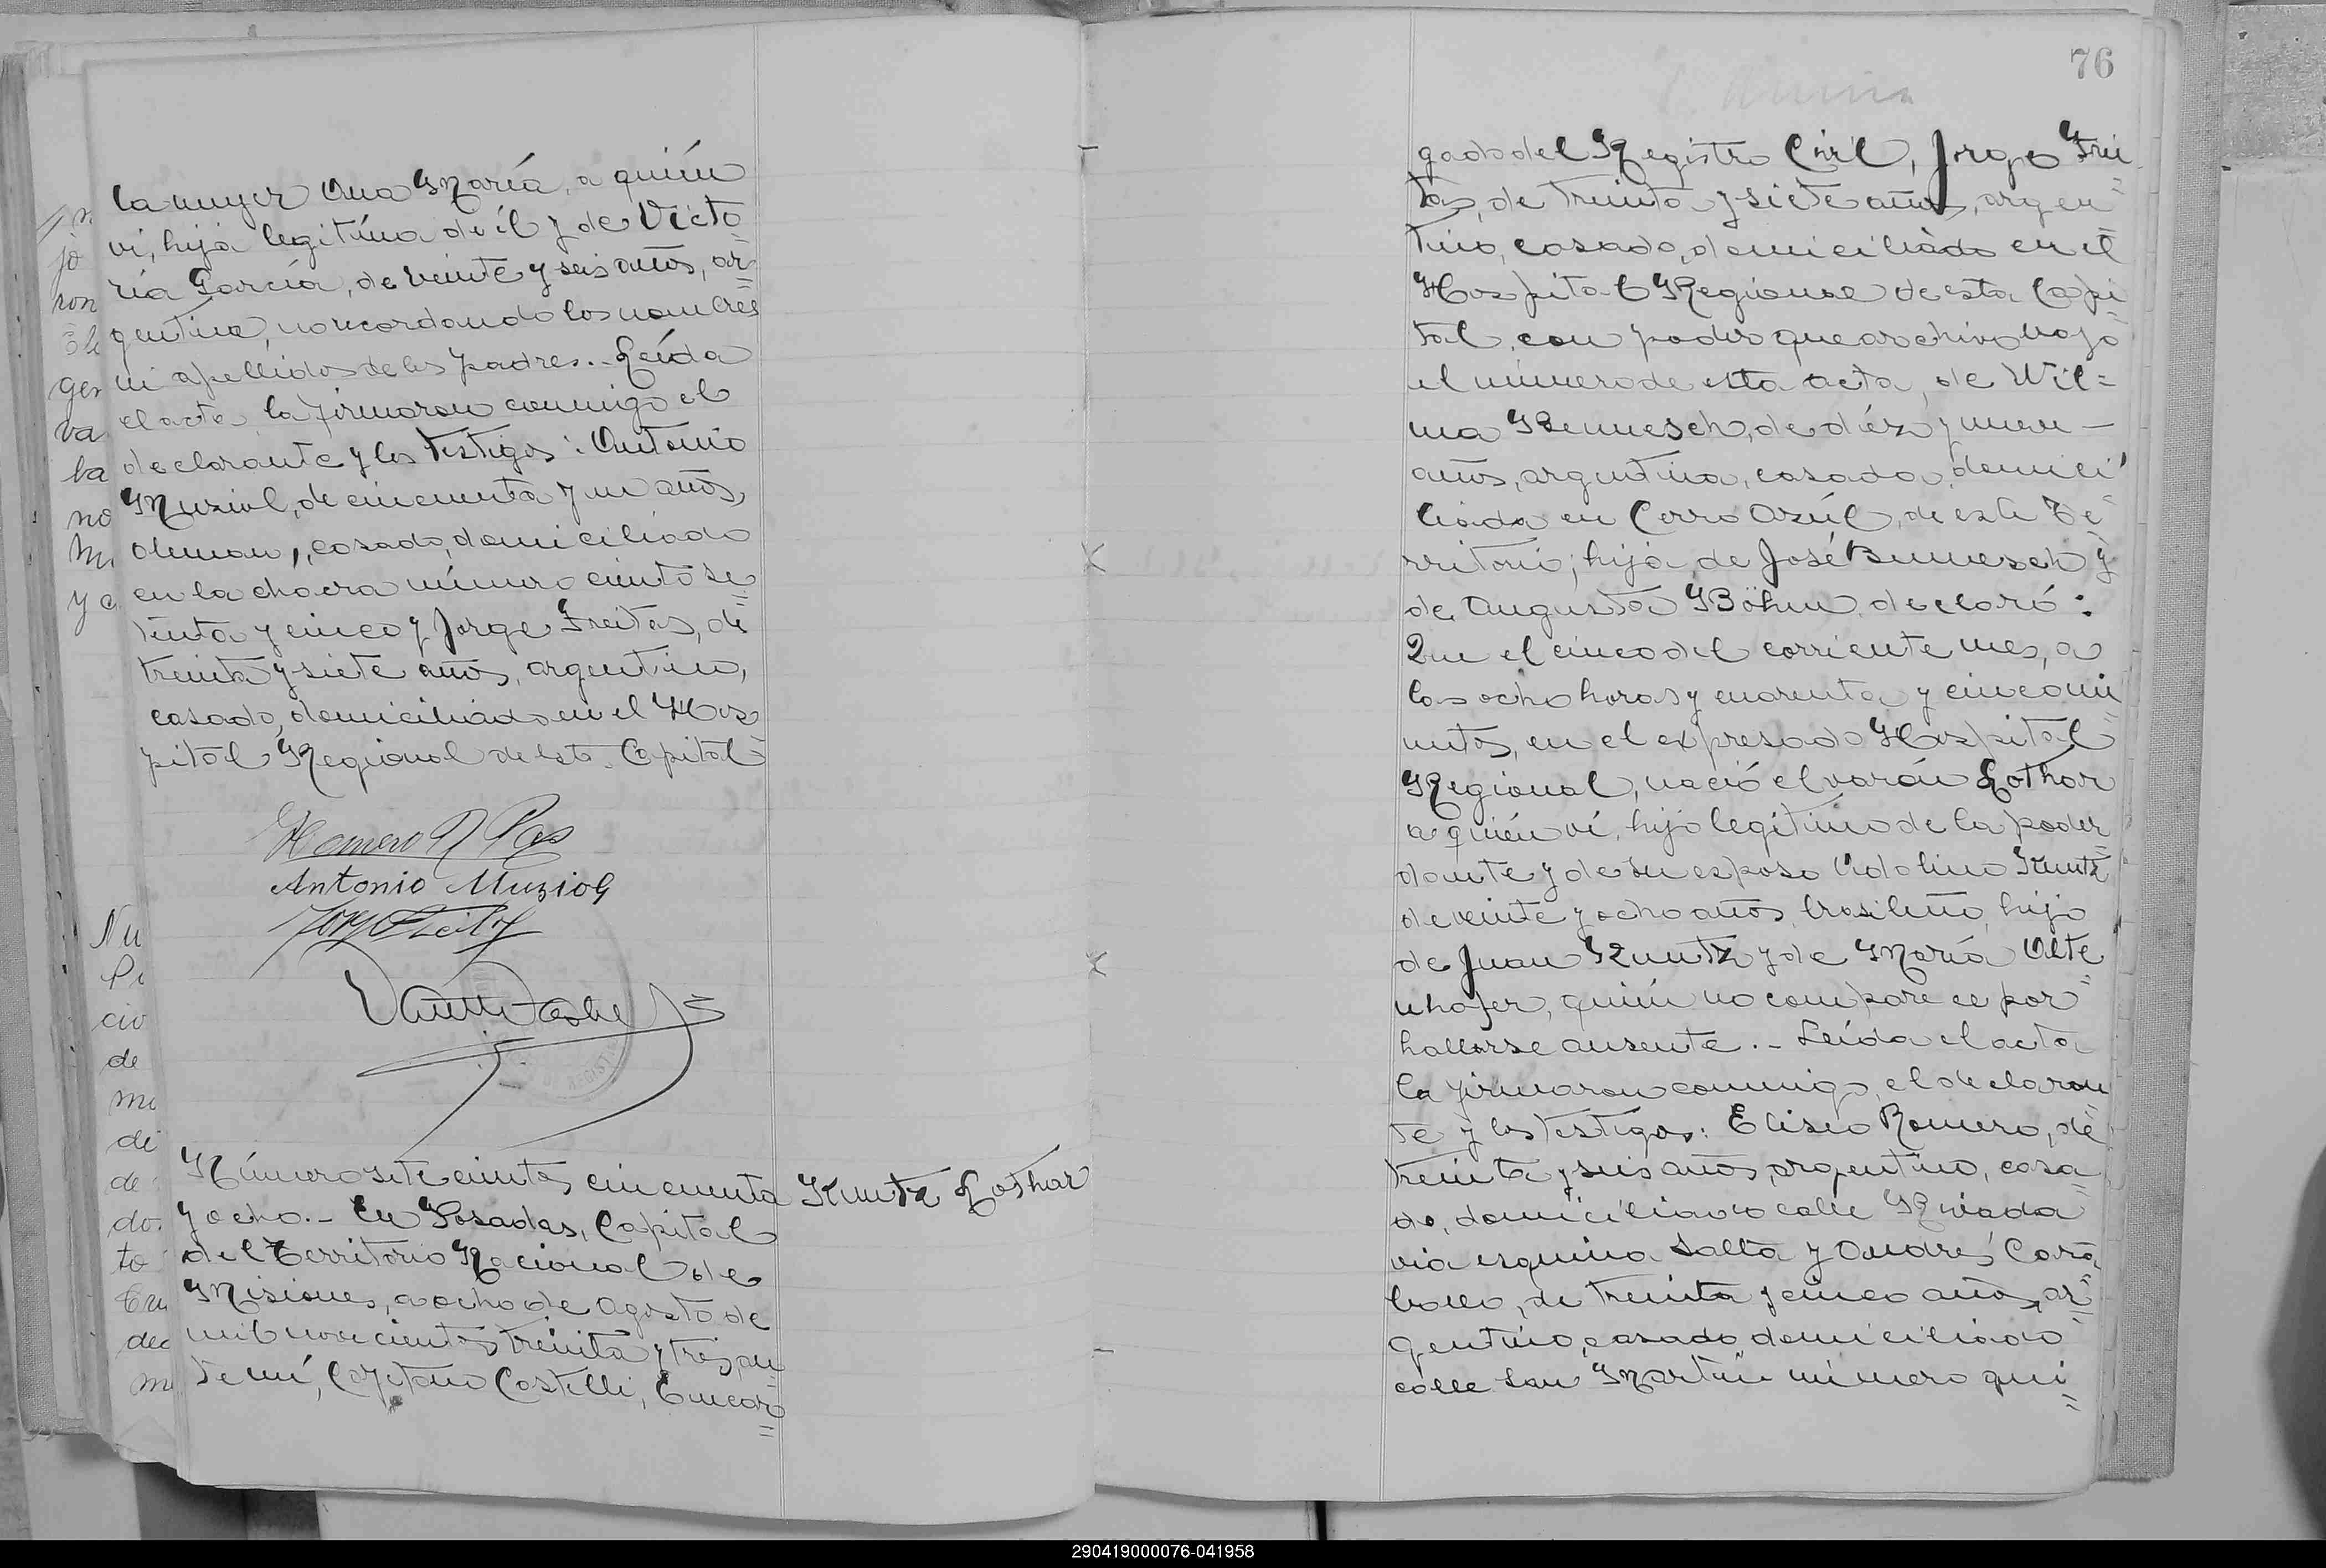 la mujer Ana María, a quién
vi, hija legitíma de él y de Victo
ria García, de veinte y seis años, ar=
gentina, no recordando los nombres
ni apellidos de los padres.- Leída
el acta, la firmaron conmigo el
declarante y los testigos: Antonio
Muziol, de cincuenta y un años,
aleman, casado, domiciliado
en la chacra número ciento se=
tenta y cinco y Jorge Freitas, de
treinta y siete años, argentino,
casado, domiciliado en el Hos
pital Regional de esta Capital
Homero R Pas
Antonio Muziol
Número sete cientos cincuenta
y ocho.- En Posadas, Capital
del Territorio Nacional de
Misiones, a ocho de Agosto de
mil novecientos treinta y tres, an
te mí, Cayetano Castelli, Encar=
Kuntz Lothar
76
gado del Registro Civil, Jorge Frei
tas, de treinta y siete años, argen=
tino, casado, domiciliado en el
Hospital Regional de esta Capi=
tal, con poder que archivo bajo
el número de esta acta, de Wil=
ma Remmesch, de diéz y nueve
años, argentina, casada, domici
liada en Cerro Azúl, de este Te=
rritorio; hija de José Bemmesch y
de Augusta Böhm, declaró:
Que el cinco del corriente mes, a
las ocho horas y cuarenta y cinco mi
nutos, en el expresado Hospital
Regional, nació el varón Lothar
a quién ví, hijo legitimo de la poder=
dante y de su esposo Udolino Kuntz
de veinte y ocho años, brasileño, hijo
de Juan Kuntz y de María Alte
nhofer, quién no comparece por
hallarse ausente.- Leída el acta
la firmaron conmigo, el declaran
te y los testigos: Eliseo Romero, de
treinta y seis años, argentino, casa=
do, domiciliado calle Rivada
via esquina Salta y Andrés Cara
ballo, de treinta y cinco años, ar=
gentino, casado, domiciliado
calle San Martín número qui=
290419000076-041958